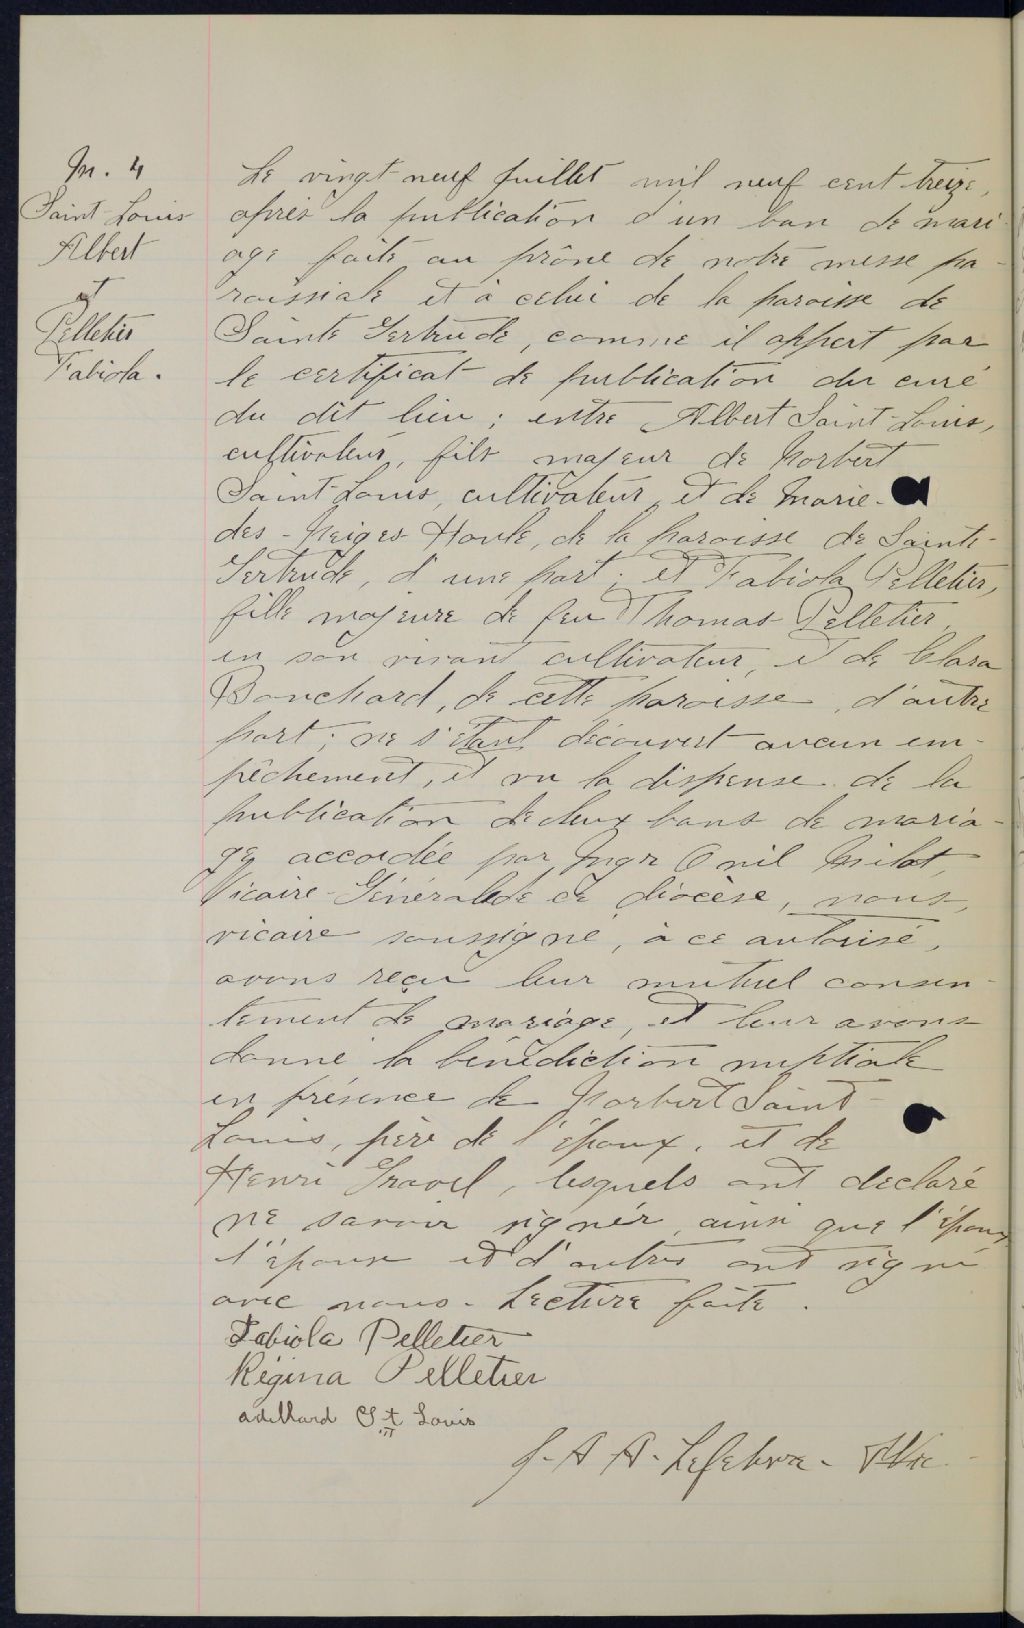 M. 4
Saint-Louis
Albert
et
Pelletier
Fabiola.
Le vingt-neuf juillet mil neuf cent treize,
après la publication d'un ban de mari-
age faite au prône de notre messe pa-
roissiale et à celui de la paroisse de
Sainte Gertrude, comme il appert par
le certificat de publication du curé
du dit lieu ; entre Albert Saint-Louis,
cultivateur, fils majeur de Norbert
Saint-Louis, cultivateur, et de Marie-
des-Neiges Houle, de la paroisse de Sainte-
Gertrude, d'une part ; et Fabiola Pelletier,
fille majeure de feu Thomas Pelletier,
en son vivant cultivateur, et de Clara
Bouchard, de cette paroisse, d'autre
part ; ne s'étant découvert aucun em-
pêchement, et vu la dispense de la
publication de deux bans de maria-
ge, accordée par Mgr Onil Milot,
Vicaire-Général de ce diocèse, nous,
vicaire soussigné, à ce autorisé,
avons reçu leur mutuel consen-
tement de mariage, et leur avons
donné la bénédiction nuptiale
en présence de Norbert Saint-
Louis, père de l'époux, et de
Henri Gravel, lesquels ont déclaré
ne savoir signer, ainsi que l'époux,
l'épouse et d'autres ont signé
avec nous. Lecture faite.
Fabiola Pelletier
Régina Pelletier
adellard St Louis
J. A A. Lefebvre. Ptre Vic.